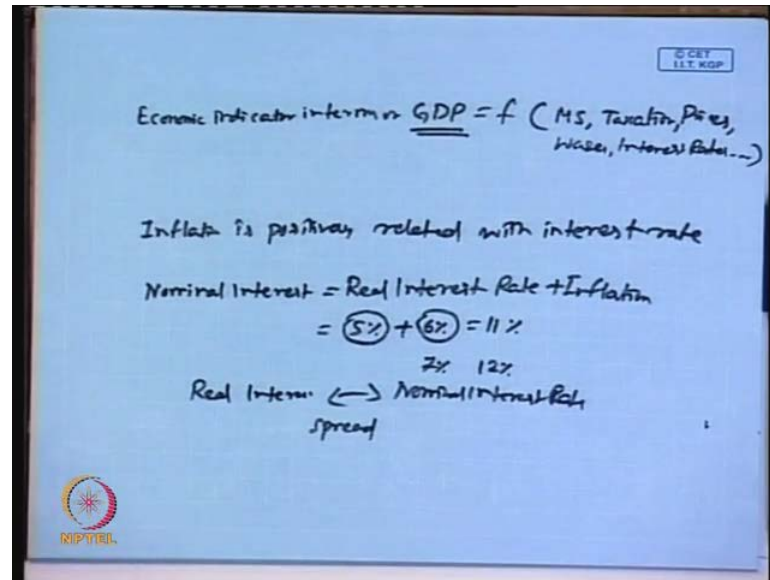 © CET
I.I.T. KGP
Economic Indicator interms or GDP = f ( MS, Taxation, Prices,
Wages, Interest Rates ---)
Inflatn is positivey related with interest rate
Nominal Interest = Real Interest Rate + Inflation
= 5% + 6% = 11%
7% 12%
Real Interes. ⟷ Nominal Interest Rate
spread
NPTEL